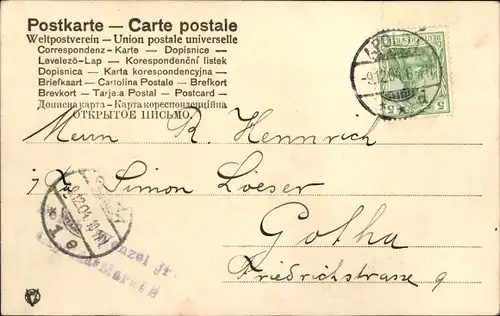 Postkarte — Carte postale
Weltpostverein — Union postale universelle
Correspondenz-Karte — Dopisnice —
Levelező-Lap — Korespondenční listek
Dopisnica — Karta korespondencyjna —
Briefkaart — Cartolina Postale — Brefkort
Brevkort — Tarjeta Postal — Postcard —
Дописна карта — Карта кореспонденційна
ОТКРЫТОЕ ПИСЬМО.
R. Hennrich
Simon Loeser
Gotha
Friedrichstrasse 9
9.12.04.
5 5
Menzel jr.